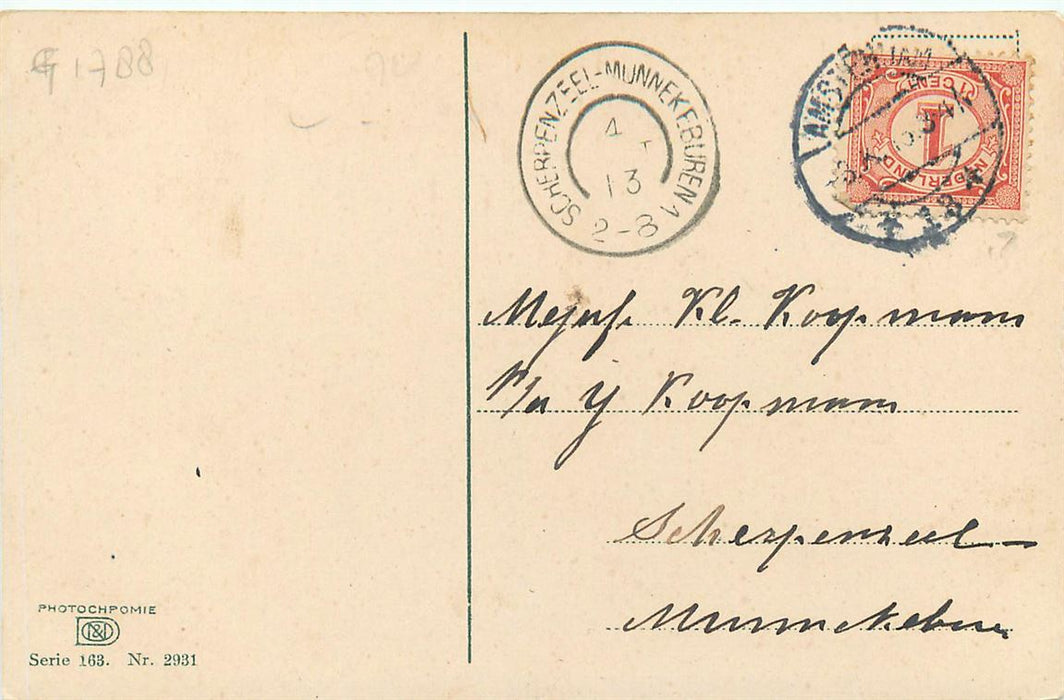 G 1788
SCHERPENZEEL-MUNNEKEBUREN
4
13
2-8 V
AMSTERDAM
NEDERLAND
1 CENT
1
Mejuf. Kl. Koopmans
P/a Y Koopmans
Scherpenzeel-
Munnekeburen
PHOTOCHPOMIE
Serie 163. Nr. 2931